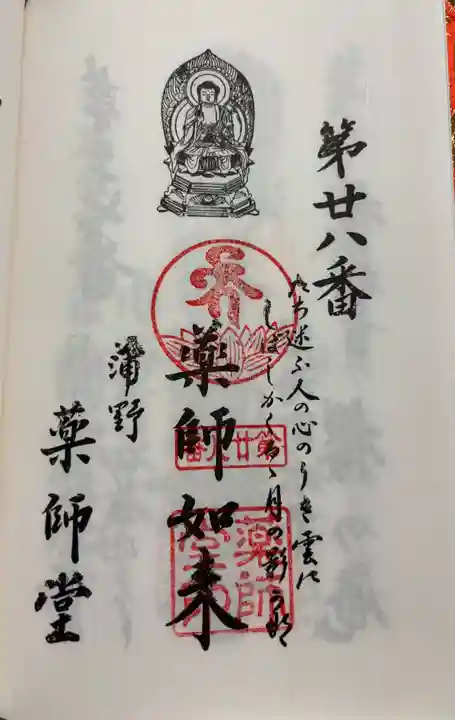 第廿八番
人の心のうき雲に
しばしかくるゝ月の影
薬師如来
第廿八番
薬師堂印
蒲野
薬師堂